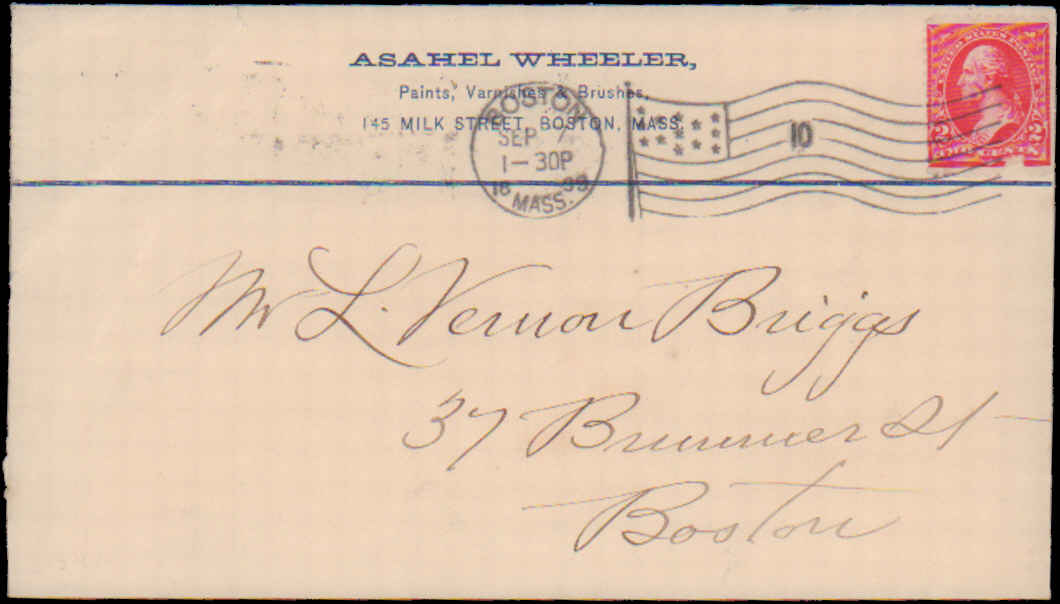 ASAHEL WHEELER,
Paints, Varnishes & Brushes,
145 MILK STREET, BOSTON, MASS.
BOSTON
SEP 7
1-30P
18 99
MASS.
10
UNITED STATES POSTAGE
2 2
TWO CENTS
Mr L. Vernon Briggs
37 Brummer St
Boston